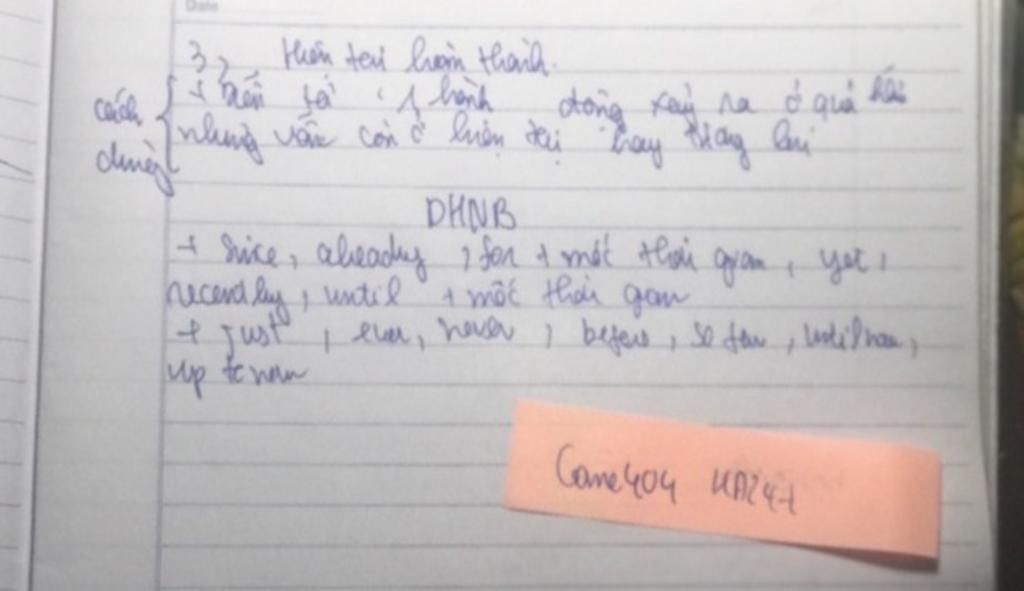 Date
3, hiện tại hoàn thành.
cách dùng
+ Diễn tả 1 hành động xảy ra ở quá khứ
nhưng vẫn còn ở hiện tại hay tương lai
DHNB
+ Since, already, for + mốc thời gian, yet,
recently, until + mốc thời gian
+ just, ever, never, before, so far, until now,
up to now